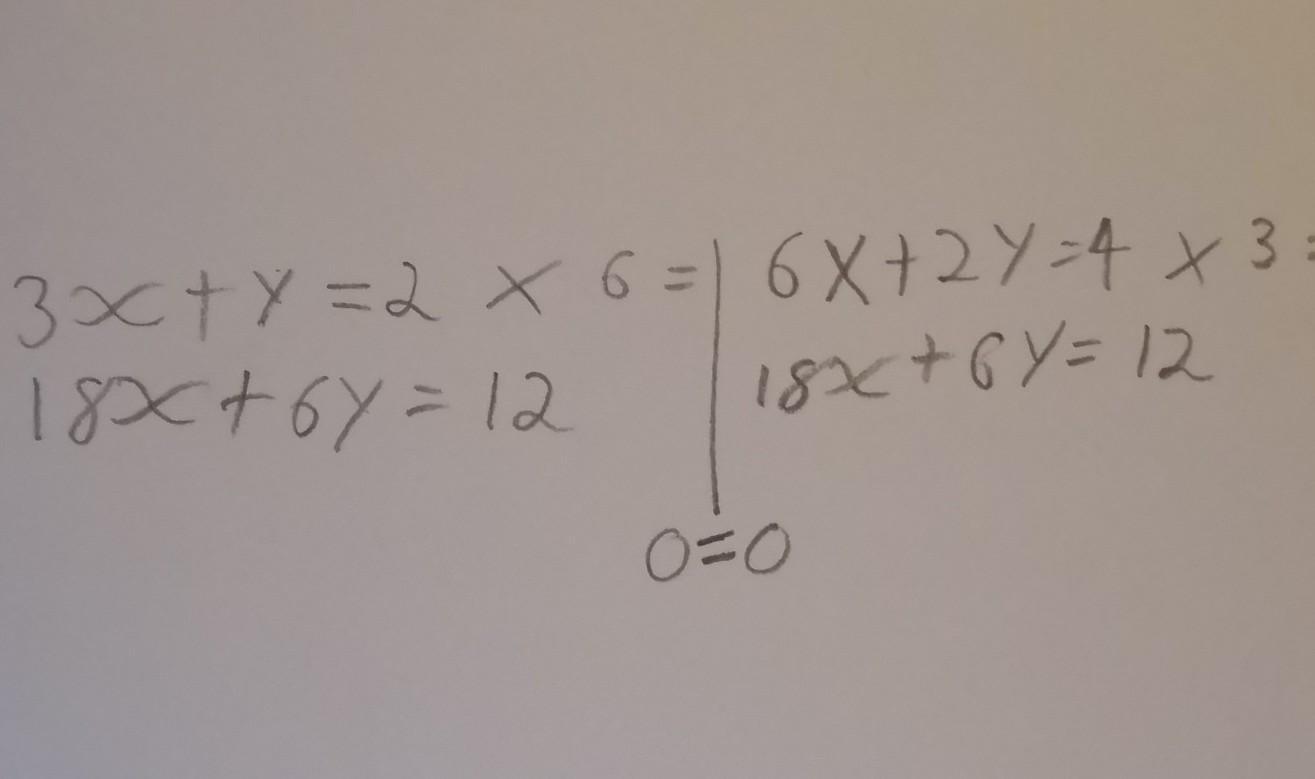 3x+y=2 × 6=
18x+6y=12
6x+2y=4 × 3=
18x+6y=12
0=0